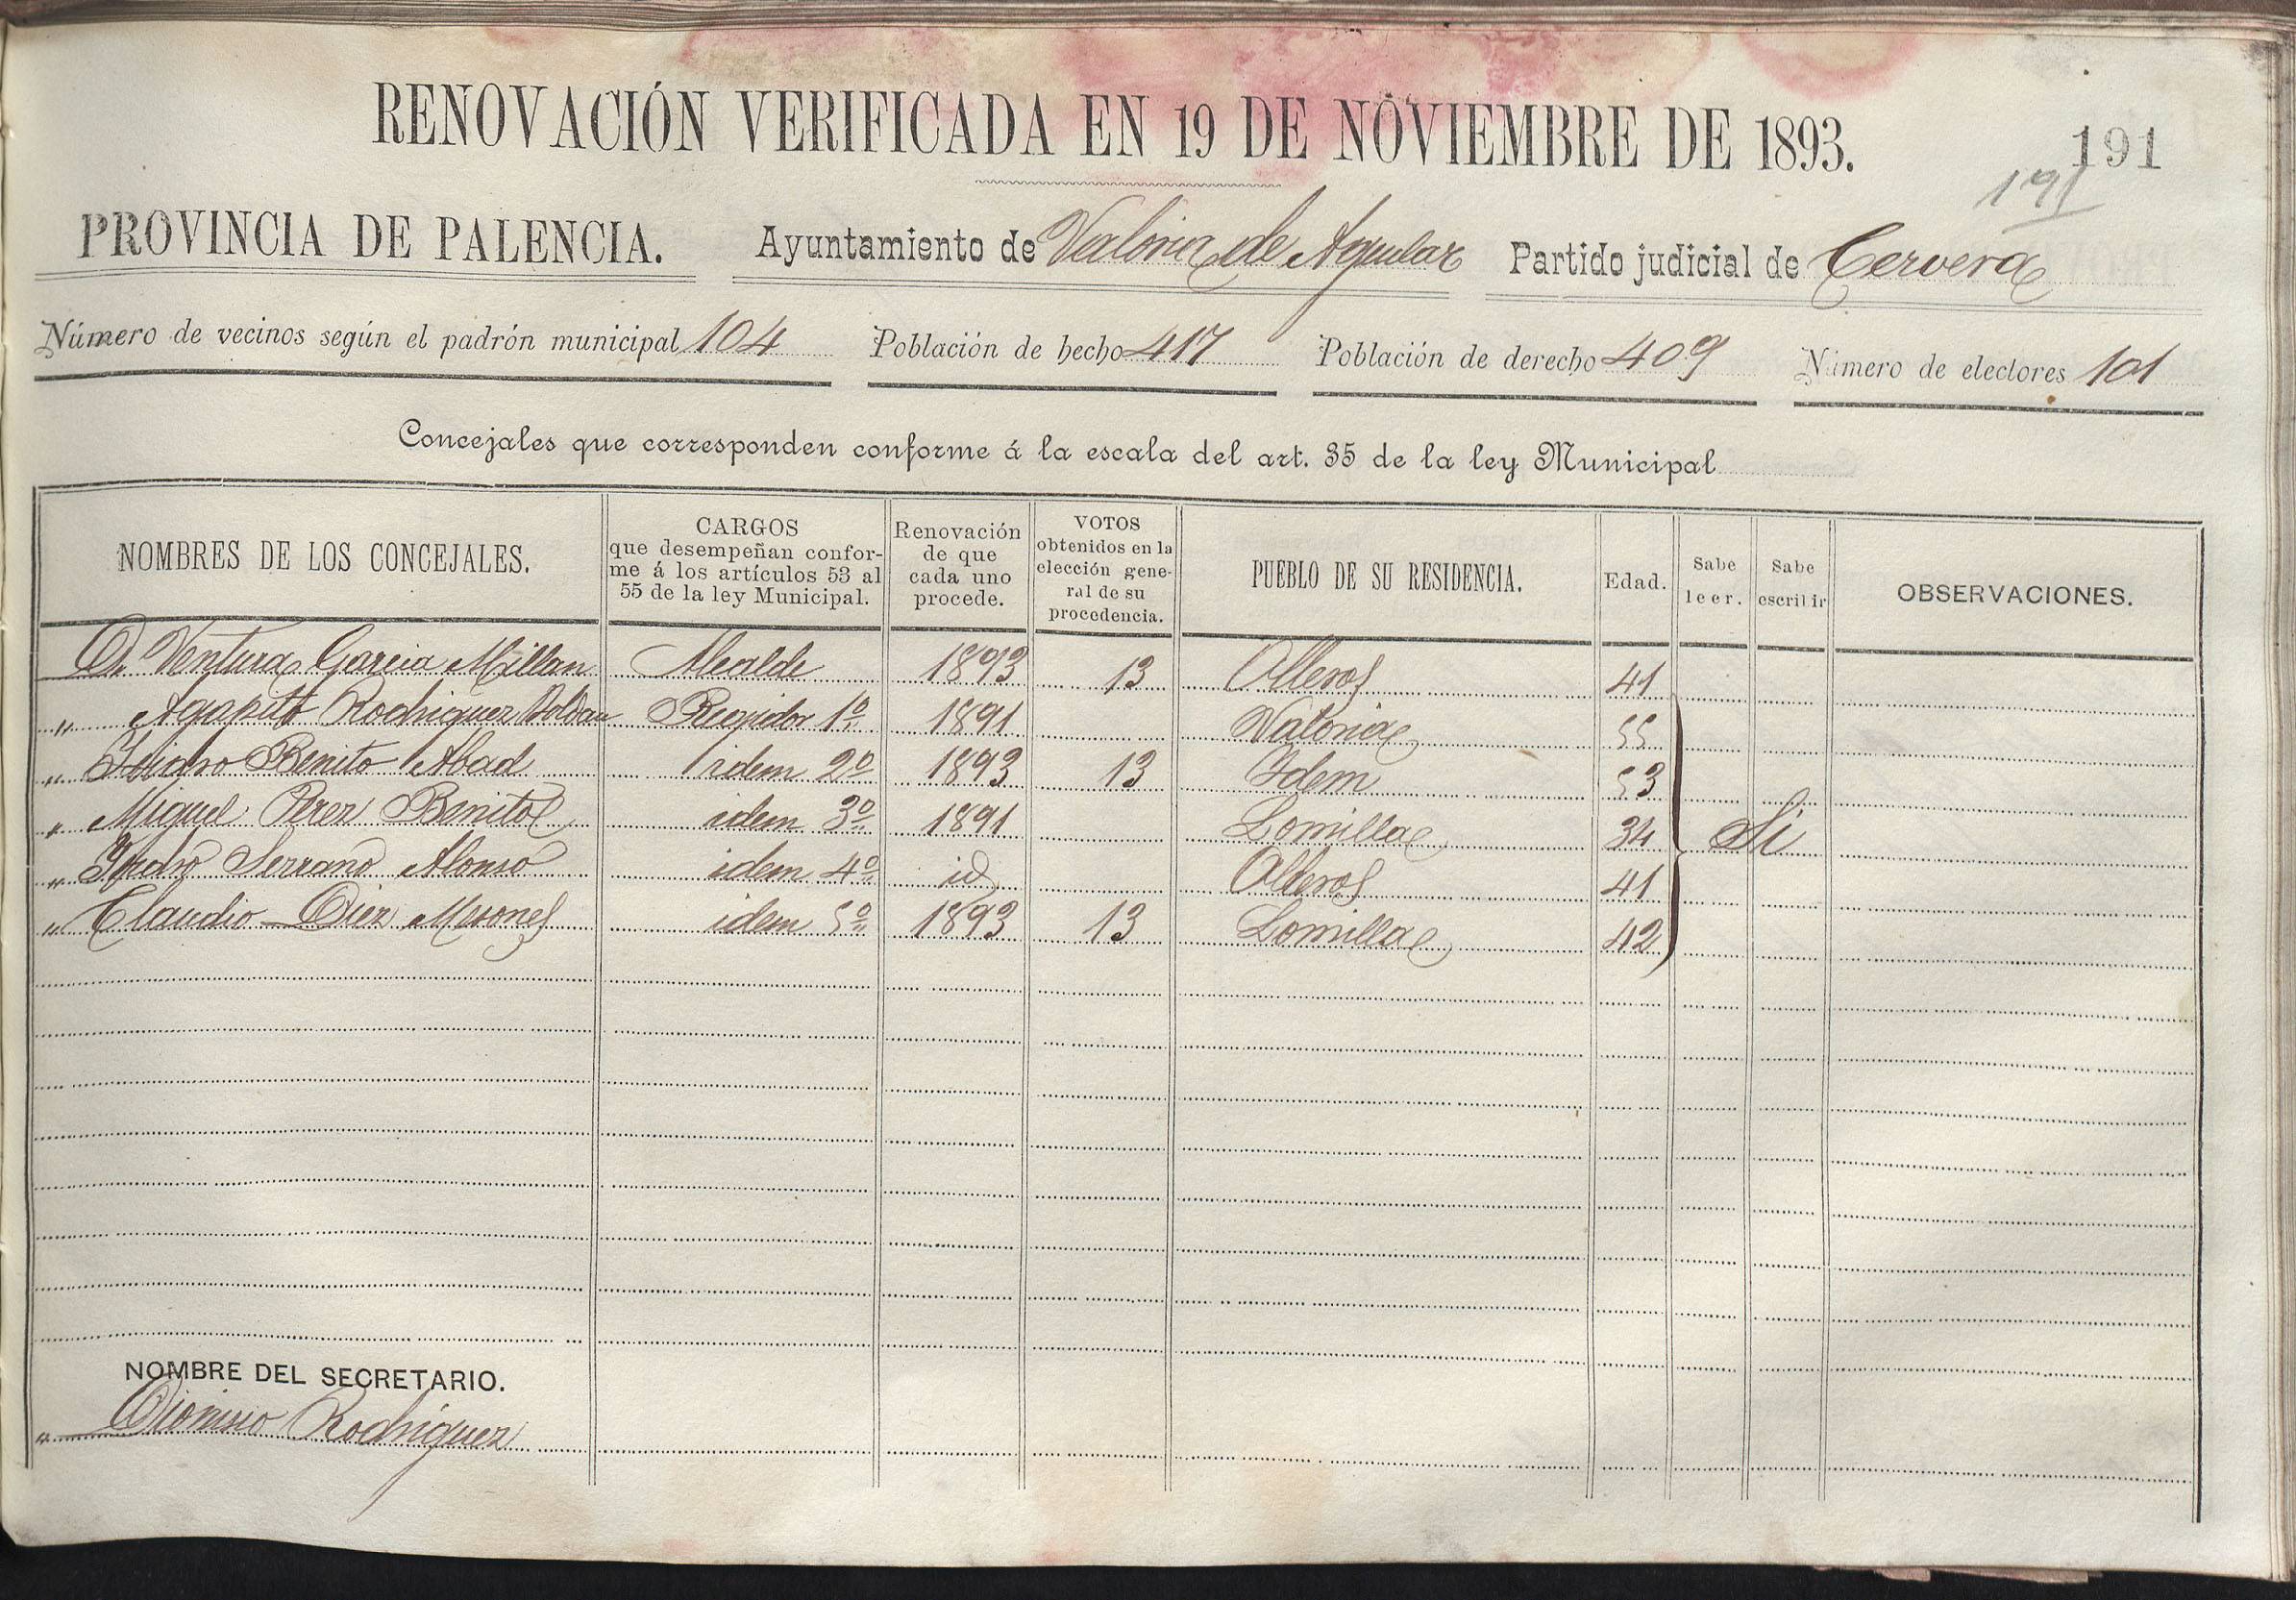 RENOVACIÓN VERIFICADA EN 19 DE NOVIEMBRE DE 1893.
191
191
PROVINCIA DE PALENCIA. Ayuntamiento de Valoria de Aguilar Partido judicial de Cervera
Número de vecinos según el padrón municipal 104 Población de hecho 417 Población de derecho 409 Número de electores 101
Concejales que corresponden conforme á la escala del art. 35 de la ley Municipal
NOMBRES DE LOS CONCEJALES.
CARGOS
que desempeñan confor-
me á los artículos 53 al
55 de la ley Municipal.
Renovación
de que
cada uno
procede.
VOTOS
obtenidos en la
elección gene-
ral de su
procedencia.
PUEBLO DE SU RESIDENCIA.
Edad.
Sabe
leer.
Sabe
escribir
OBSERVACIONES.
D. Ventura Garcia Millan Alcalde 1893 13 Olleros 41
" Agapito Rodriguez Roldan Regidor 1º 1891 Valoria 55
" Isidro Benito Abad idem 2º 1893 13 Idem 53
" Miguel Perez Benito idem 3º 1891 Lomilla 34 Si
" Pedro Serrano Alonso idem 4º id Olleros 41
" Claudio Diez Mesones idem 5º 1893 13 Lomilla 42
NOMBRE DEL SECRETARIO.
" Dionisio Rodriguez